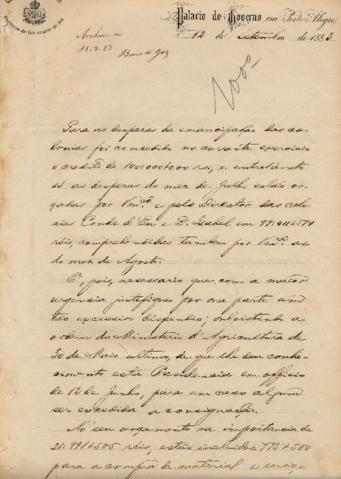 Palacio do Governo em Porto Alegre,
12 de Setembro de 1883
Archive-se
15.9.83
1000
Para as despezas de emancipação das co-
lonias foi concedido no corrente exercicio
o credito de
as despezas do mez de Julho estão or-
çadas por e pelo Director das colo-
nias Conde d'Eu e D. Isabel em
réis, comprehendidas tambem por as
do mez de Agosto.
E', pois, necessario que com a maior
urgencia justifique por sua parte em
tão excessivo dispendio; subsistindo a
ordem do Ministerio d'Agricultura de
30 de Maio ultimo, de que lhe deu conhe-
cimento esta Presidencia em officio
de 12 de Junho, para em caso algum
ser excedida a consignação.
No seu orçamento na importancia de
21:991$505 réis, estão incluidos 773$500
para a compra de material e serviço